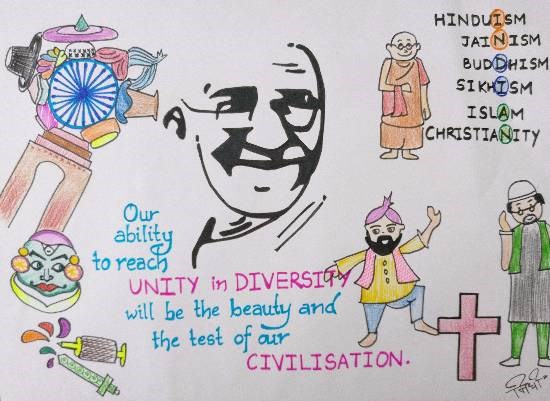 HINDUISM
JAINISM
BUDDHISM
SIKHISM
ISLAM
CHRISTIANITY
Our
ability
to reach
UNITY in DIVERSITY
will be the beauty and
the test of our
CIVILISATION.